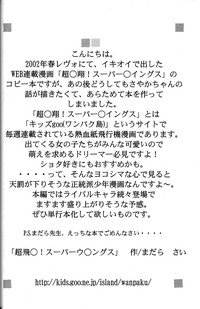 こんにちは。
2002年春レヴォにて、イキオイで出した
WEB連載漫画「超〇翔！スーパー〇イングス」の
コピー本ですが、あの後どうしてもさやかちゃんの
話が描きたくて、あらためて本を作って
しまいました。
「超〇翔！スーパー〇イングス」とは
「キッズgoo!ワンパク島」というサイトで
毎週連載されている熱血紙飛行機漫画です。
出てくる女の子たちがみんな可愛いので
萌えを求めるドリーマー必見ですよ！
ショタ好きにもおすすめかも。
・・・・って、そんなヨコシマな心で見ると
天罰が下りそうな正統派少年漫画なんですよ～。
本編ではライバルキャラ続々登場で
ますます盛り上がりそうな予感。
ぜひ単行本化して欲しいものです。
P.S.まだら先生、えっちな本でごめんなさい・・・・
「超飛〇！スーパーウ〇ングス」　作/まだら　さい
http://kids.goo.ne.jp/island/wanpaku/